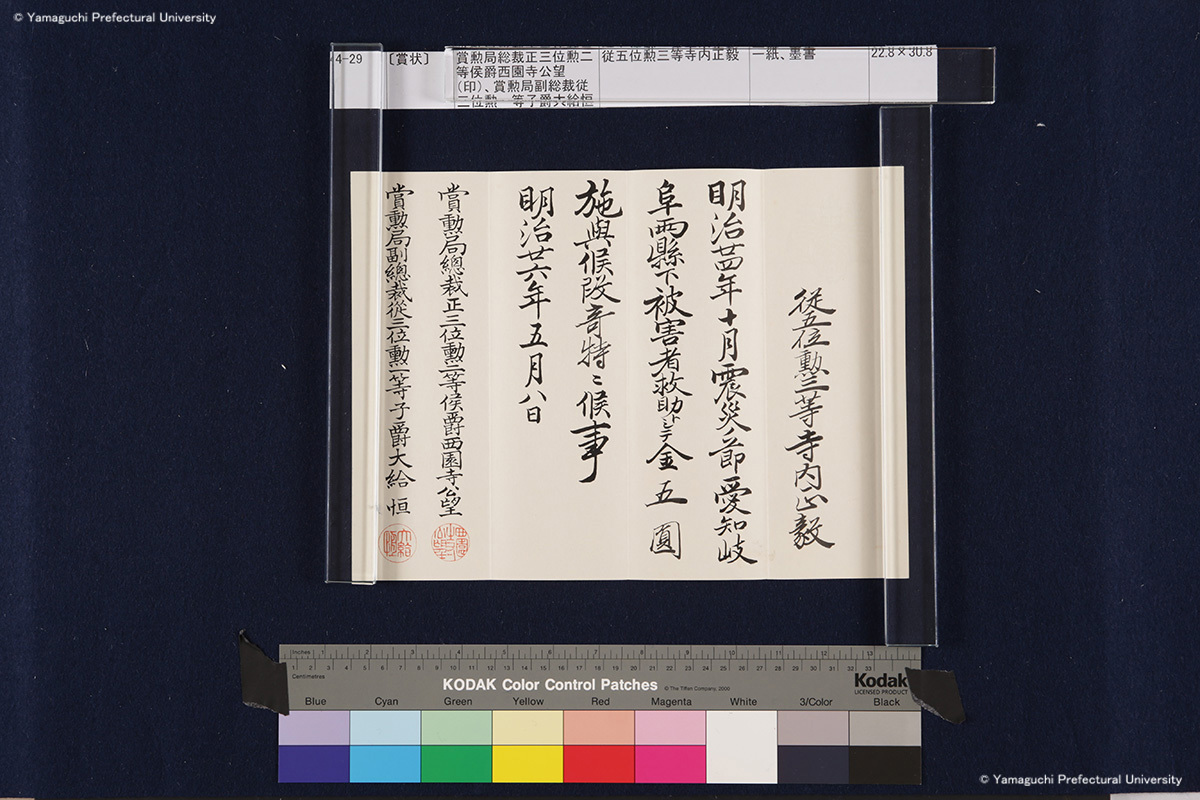 © Yamaguchi Prefectural University
4-29
[賞状]
賞勲局総裁正三位勲二
等侯爵西園寺公望
(印)、賞勲局副総裁従
三位勲一等子爵大給恒
従五位勲三等寺内正毅
一紙、墨書
22.8×30.8
從五位勲三等寺内正毅
明治廿四年十月震災ノ節愛知岐
阜両縣下被害者救助トシテ金五圓
施與候段奇特ニ候事
明治廿六年五月八日
賞勲局總裁正三位勲二等侯爵西園寺公望
賞勲局副總裁從三位勲一等子爵大給恒
Inches 1 2 3 4 5 6 7 8 9 10 11 12 13
1 2 3 4 5 6 7 8 9 10 11 12 13 14 15 16 17 18 19 20 21 22 23 24 25 26 27 28 29 30 31 32 33
Centimetres
KODAK Color Control Patches
© The Tiffen Company, 2000
Kodak
LICENSED PRODUCT
Blue Cyan Green Yellow Red Magenta White 3/Color Black
© Yamaguchi Prefectural University